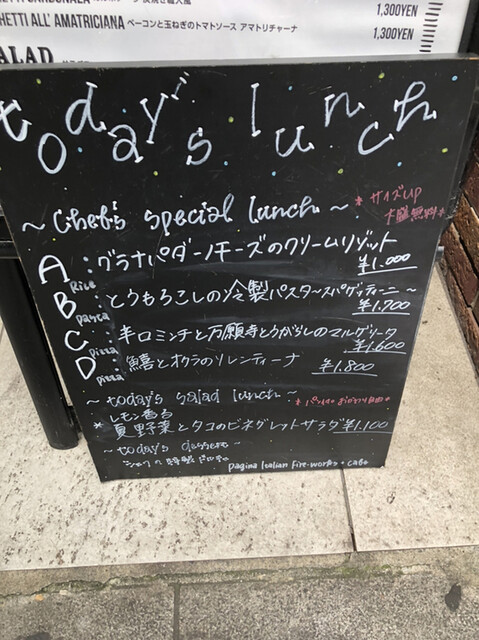 1,300YEN
HETTI ALL' AMATRICIANA ベーコンと玉ねぎのトマトソース アマトリチャーナ 1,300YEN
SALAD
today's lunch
~ Chef's special lunch ~
* サイズUP
無料*
A Rice : グラナパダーノチーズのクリームリゾット
¥1.000
B Pasta : とうもろこしの冷製パスタ~スパゲッティーニ~
¥1.700
C pizza : 辛口ミンチと万願寺とうがらしのマルゲリータ
¥1.600
D pizza : 鱚とオクラのソレンティーナ ¥1.800
~ today's salad lunch ~
レモン香る
* 夏野菜とタコのビネグレットサラダ ¥1.100
~ today's dessert ~
pagina Italian Fire-works + cafe